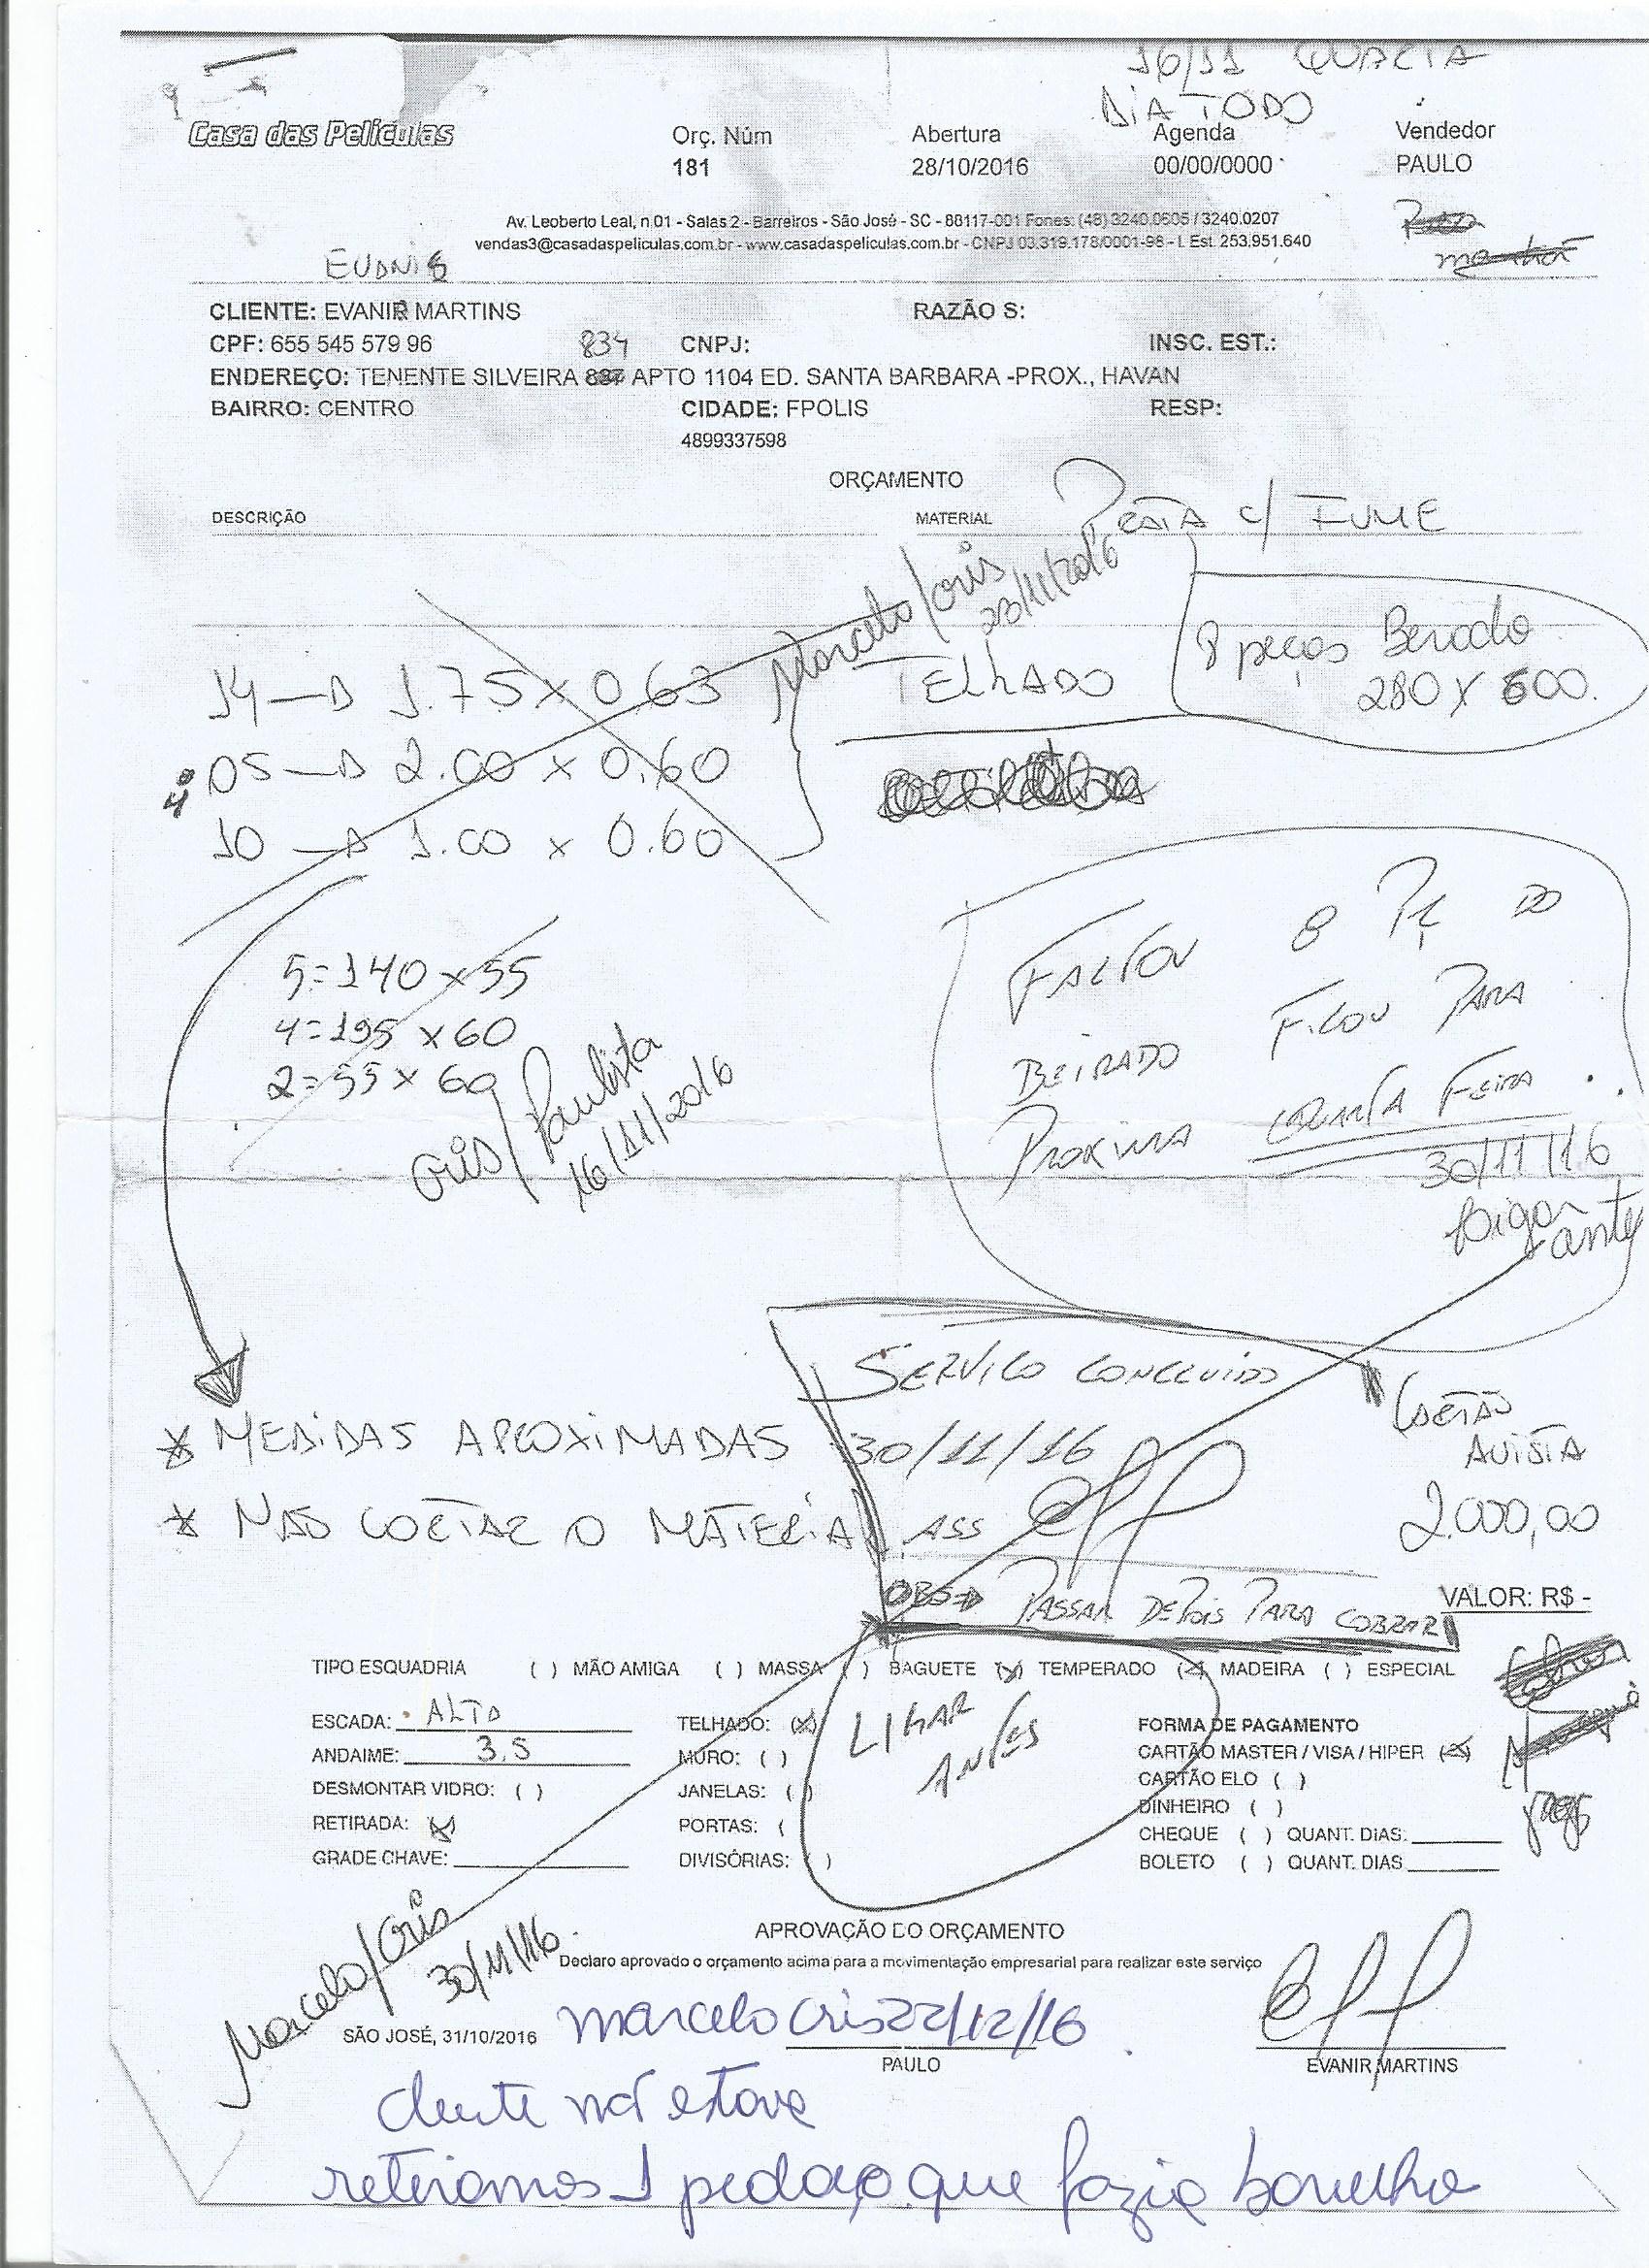 16/11 QUARTA
DIA TODO
Casa das Películas
Orç. Núm Abertura Agenda Vendedor
181 28/10/2016 00/00/0000 PAULO
Av. Leoberto Leal, n 01 - Salas 2 - Barreiros - São José - SC - 88117-001 Fones: (48) 3240.0505 / 3240.0207
vendas3@casadaspeliculas.com.br - www.casadaspeliculas.com.br - CNPJ 03.319.178/0001-98 - I. Est. 253.951.640
CLIENTE: EVANIR MARTINS RAZÃO S:
CPF: 655 545 579 96 834 CNPJ: INSC. EST.:
ENDEREÇO: TENENTE SILVEIRA APTO 1104 ED. SANTA BARBARA -PROX., HAVAN
BAIRRO: CENTRO CIDADE: FPOLIS RESP:
4899337598
ORÇAMENTO
DESCRIÇÃO MATERIAL PRATA c/ FUME
Marcelo/Cris
23/11/2016
8 peças Berado
280 X 600.
14 1.75 x 0.63 TELHADO
05 2.00 x 0.60
10 1.00 x 0.60
FALTOU 8 PÇ DO
BEIRADO FICOU PARA
PROXIMA QUARTA FEIRA
30/11/16
Ligar antes
5=140 x 55
4=195 x 60
2=55 x 60
Cris/Paulista
16/11/2016
SERVICO CONCLUIDO
30/11/16
ASS
OBS PASSAR DEPOIS PARA COBRAR
CARTÃO
AVISTA
2.000,00
* MEDIDAS APROXIMADAS
* NÃO CORTAR O MATERIAL
VALOR: R$ -
TIPO ESQUADRIA ( ) MÃO AMIGA ( ) MASSA ( ) BAGUETE (x) TEMPERADO (x) MADEIRA ( ) ESPECIAL
ESCADA: ALTO TELHADO: (x)
ANDAIME: 3,5 MURO: ( )
DESMONTAR VIDRO: ( ) JANELAS: ( )
RETIRADA: (x) PORTAS: (
GRADE CHAVE: DIVISÓRIAS: ( )
LIGAR
ANTES
FORMA DE PAGAMENTO
CARTÃO MASTER / VISA / HIPER (x)
CARTÃO ELO ( )
DINHEIRO ( )
CHEQUE ( ) QUANT. DIAS:
BOLETO ( ) QUANT. DIAS
pago
APROVAÇÃO DO ORÇAMENTO
Declaro aprovado o orçamento acima para a movimentação empresarial para realizar este serviço
Marcelo/Cris
30/11/16
SÃO JOSÉ, 31/10/2016 marcelo Cris 22/12/16
PAULO EVANIR MARTINS
cliente não estava
retiramos 1 pedaço que fazia barulho